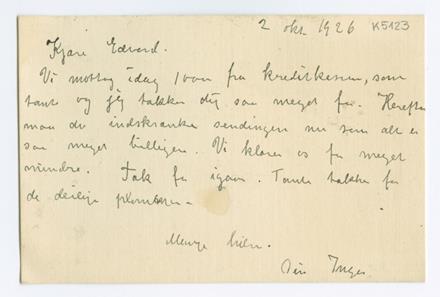 2 okt 1926 K5123
Kjære Edvard.
Vi mottog idag 1000 fra kreditkassen, som
tante og jeg takker dig saa meget for. Herefter
maa du indskrænke sendingen nu som alt er
saa meget billigere. Vi klarer os for meget
mindre. Tak for igaar. Tante takker for
de deilige plommer –
Mange hilsn.
Din Inger.